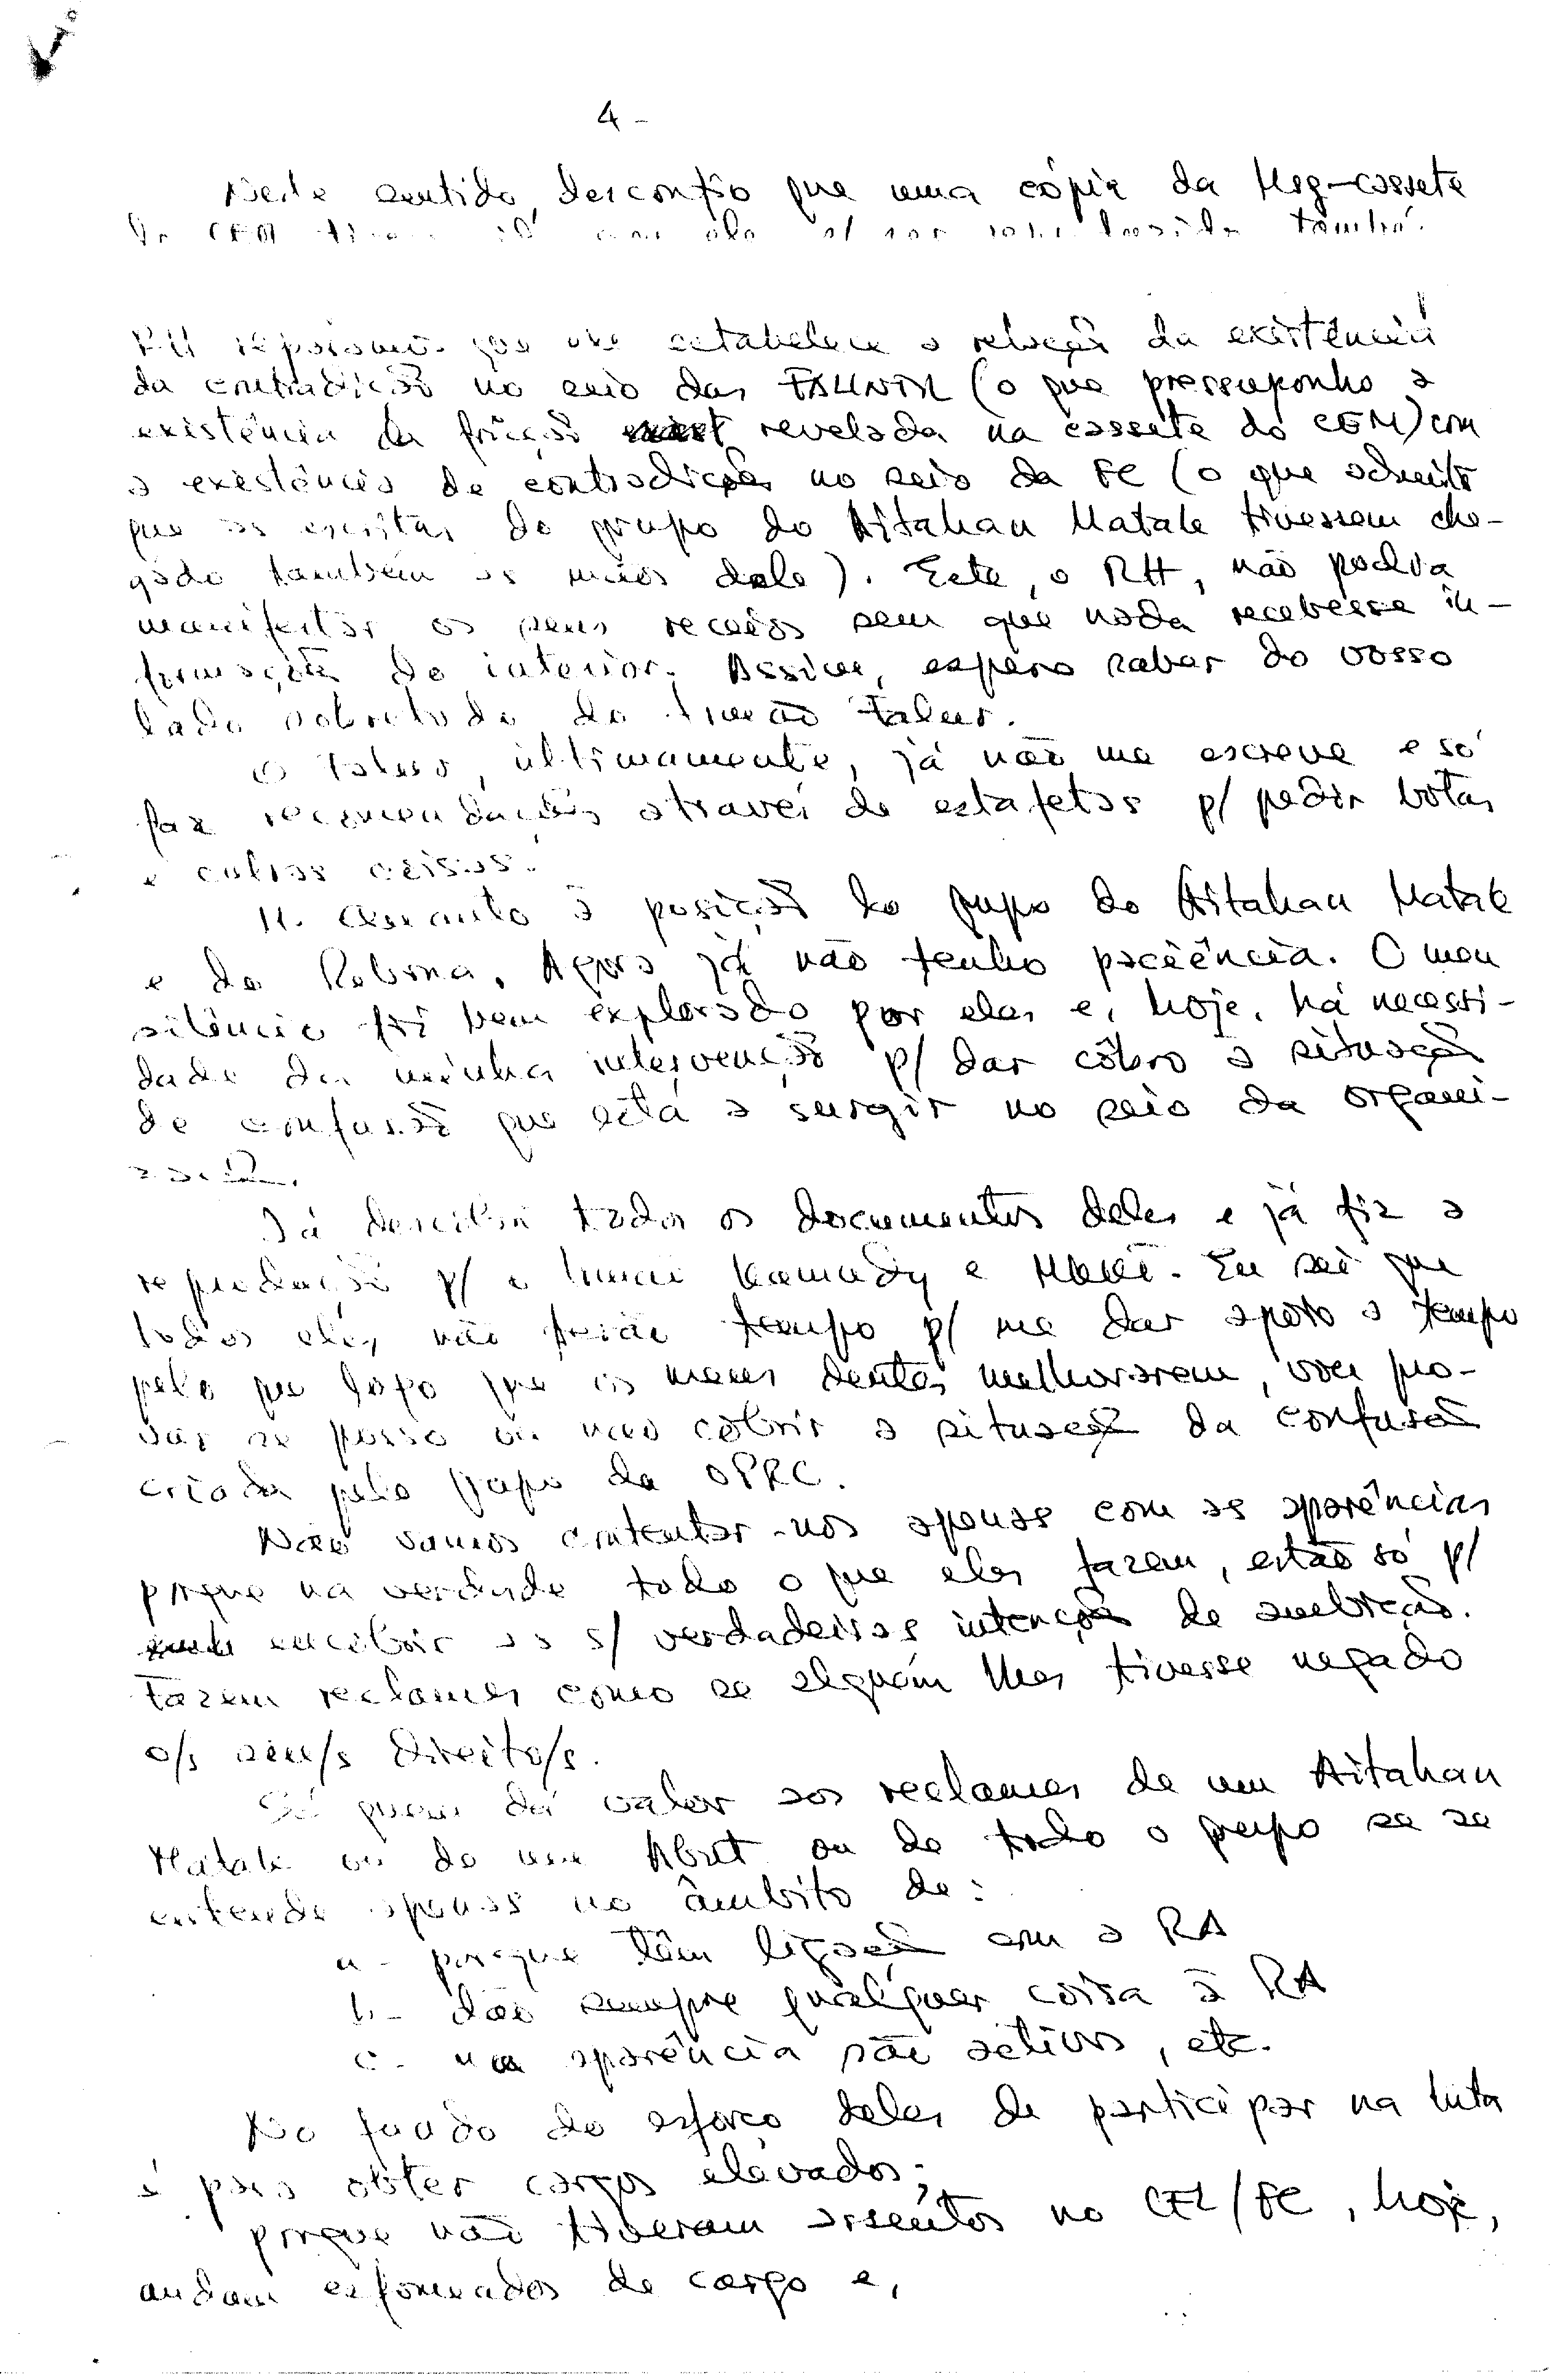 4 -
Neste sentido, desconfio que uma cópia da Msg-cassete
do CEM já p/ ser também.
que estabelece a relação da existência
da contradição no seio das FALINTIL (o que pressuponho a
existência da fricção revelada na cassete do CEM) com
a existência de contradições no seio da FC (o que admite
que as escritas do grupo do Aitahan Matak tivessem che-
gado também as mãos dele). Este, o RH, não podia
manifestar os seus receios sem que nada recebesse in-
formações do interior. Assim, espero saber do vosso
lado sobretudo do irmão
O , ultimamente, já não me escreve e só
faz recomendações através de estafetas p/ pedir botas
e outras coisas.
11. Quanto à posição do grupo do Aitahan Matak
e do . Agora já não tenho paciência. O meu
silêncio foi bem explorado por eles e, hoje, há necessi-
dade da minha intervenção p/ dar côbro a situação
de confusão que está a surgir no seio da organi-
zação.
Já todos os documentos deles e já fiz a
p/ o irmão e . Eu sei que
todos eles não terão tempo p/ me dar apoio a tempo
pelo que logo que os meus dentes melhorarem, vou pro-
var se posso ou não cobrir a situação da confusão
criada pelo grupo da OPRC.
Não vamos contentar-nos apenas com as aparências
porque na verdade todo o que eles fazem, estão só p/
encobrir as s/ verdadeiras intenções de ambição.
Fazem reclames como se alguém lhes tivesse negado
o/s seu/s direito/s.
Só quem dá valor aos reclames de um Aitahan
Matak ou de um ou de todo o grupo se se
entende apenas no âmbito de:
a - porque têm ligação com a RA
b - dão sempre qualquer coisa à RA
c - na aparência são activos, etc.
No fundo do esforço deles de participar na luta
é para obter cargos elevados;
porque não tiveram assentos no CEL/FC, hoje,
andam esfomeados de cargo e,